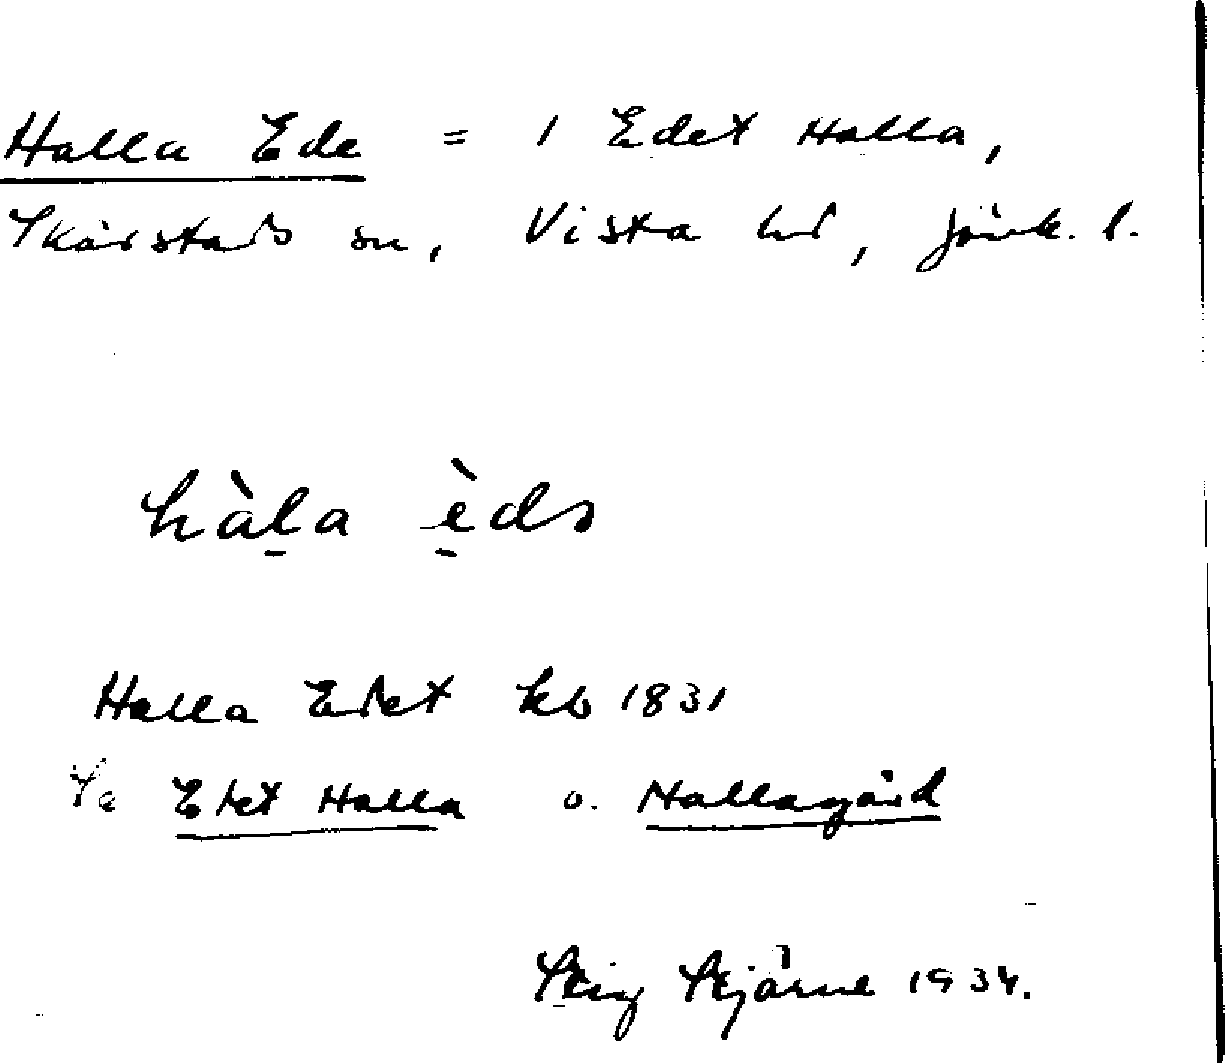 Halla Ede = 1 Edet Halla,
Skärstads sn, Vista hd, Jönk. l.
hàla èds
Halla Edet kb 1831
Se Edet Halla o. Hallagård
Stig Stjärne 1934.